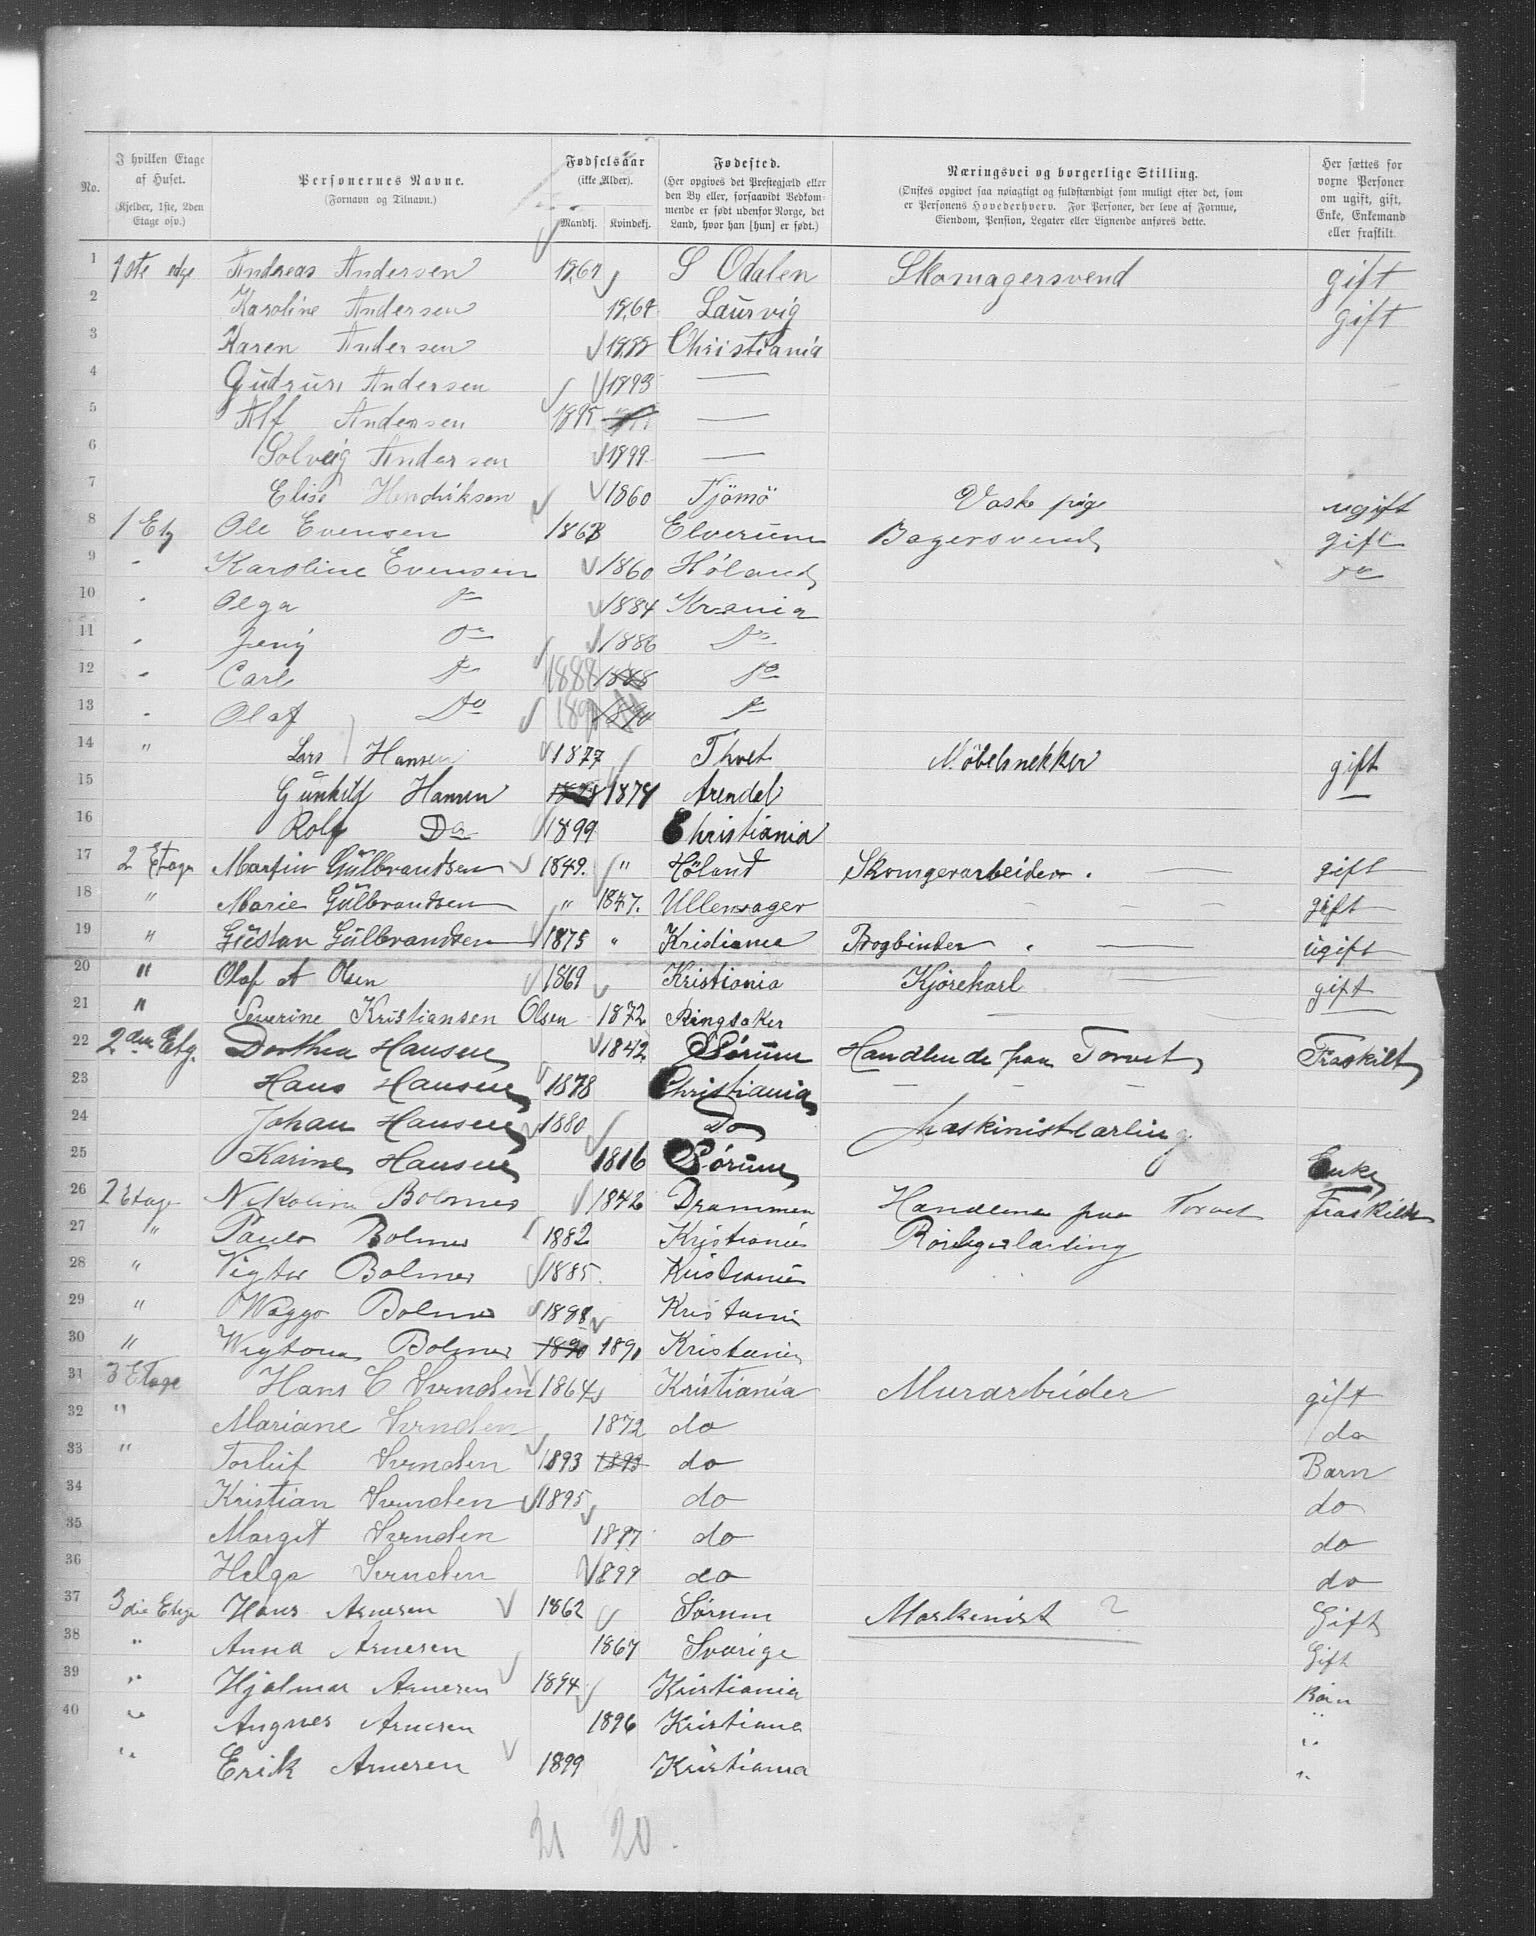 No.
I hvilken Etage af Huset. (Kjelder, 1ste, 2den Etage osv.)
Personernes Navne. (Fornavn og Tilnavn.)
Fødselsaar (ikke Alder). Mandkj. Kvindekj.
Fødested. (Her opgives det Prestegjæld eller den By eller, forsaavidt Vedkommende er født udenfor Norge, det Land, hvor han [hun] er født.)
Næringsvei og borgerlige Stilling. (Ønskes opgivet saa nøiagtigt og fuldstændigt som muligt efter det, som er Personens Hovederhverv. For Personer, der leve af Formue, Eiendom, Pension, Legater eller Lignende anføres dette.
Her sættes for voxne Personer om ugift, gift, Enke, Enkemand eller fraskilt.
1 1ste edge Andreas Andersen S Odalen Skomagersvend gift
2 Karoline Andersen 1864 Laurvig gift
3 Karen Andersen 1888 Christiania
4 Gudrun Andersen 1893 —
5 Alf Andersen 1895 —
6 Solveig Andersen 1899 —
7 Elise Hendriksen 1860 Tjömö Vaske pige ugift
8 1 Etg Ole Evensen 1863 Elverum Bagersvend gift
9 " Karoline Evensen 1860 Höland do
10 " Olga do 1884 Kr.ania
11 " Jenny do 1886 Do
12 " Carl do 1888 1888 do
13 " Olaf Do 1890 do
14 " Lars Hansen 1877 Thvet Møbelsnekker gift
15 Gunhild Hansen 1874 Arendal
16 Rolf Do 1899 Christiania
17 2 Etage Martin Gulbrandsen 1849. " Høland Skomgerarbeider. — gift
18 " Marie Gulbrandsen " 1847. Ullensager gift
19 " Gustav Gulbrandsen 1875 " Kristiania Bogbinder. — ugift
20 " Olaf A Olsen 1869 Kristiania Kjørekarl gift
21 " Severine Kristiansen Olsen 1872 Ringsaker
22 2den Etg. Dorthea Hansen 1842 Sørum Handlende paa Torvet Fraskilt
23 Hans Hansen 1878 Christiania
24 Johan Hansen 1880 Do Maskinistlærling
25 Karine Hansen 1816 Sørum Enke
26 2 Etage Nikoline Bolmer 1842 Drammen Handlene paa Torvet fraskildt
27 " Paulo Bolmer 1882 Kristiania
28 " Vigtor Bolmer 1885 Kristiania
29 " Waggo Bolmer 1888 Kristiania
30 " Bolmer 1890 1890 Kristiania
31 3 Etage Hans C Svendsen 1864 Kristiania Murarbeider gift
32 " Mariane Svendsen 1872 do do
33 " Torleif Svendsen 1893 1893 do Barn
34 Kristian Svendsen 1895 do do
35 Margit Svendsen 1897 do do
36 Helga Svendsen 1899 do do
37 3die Etage Hans Arnesen 1862 Sørum Maskinist ? Gift
38 " Anna Arnesen 1867 Sverige Gift
39 " Hjalmar Arnesen 1894 Kristiania Børn
40 " Angnes Arnesen 1896 Kristiana "
" Erik Arnesen 1899 Kristiania "
21 20.